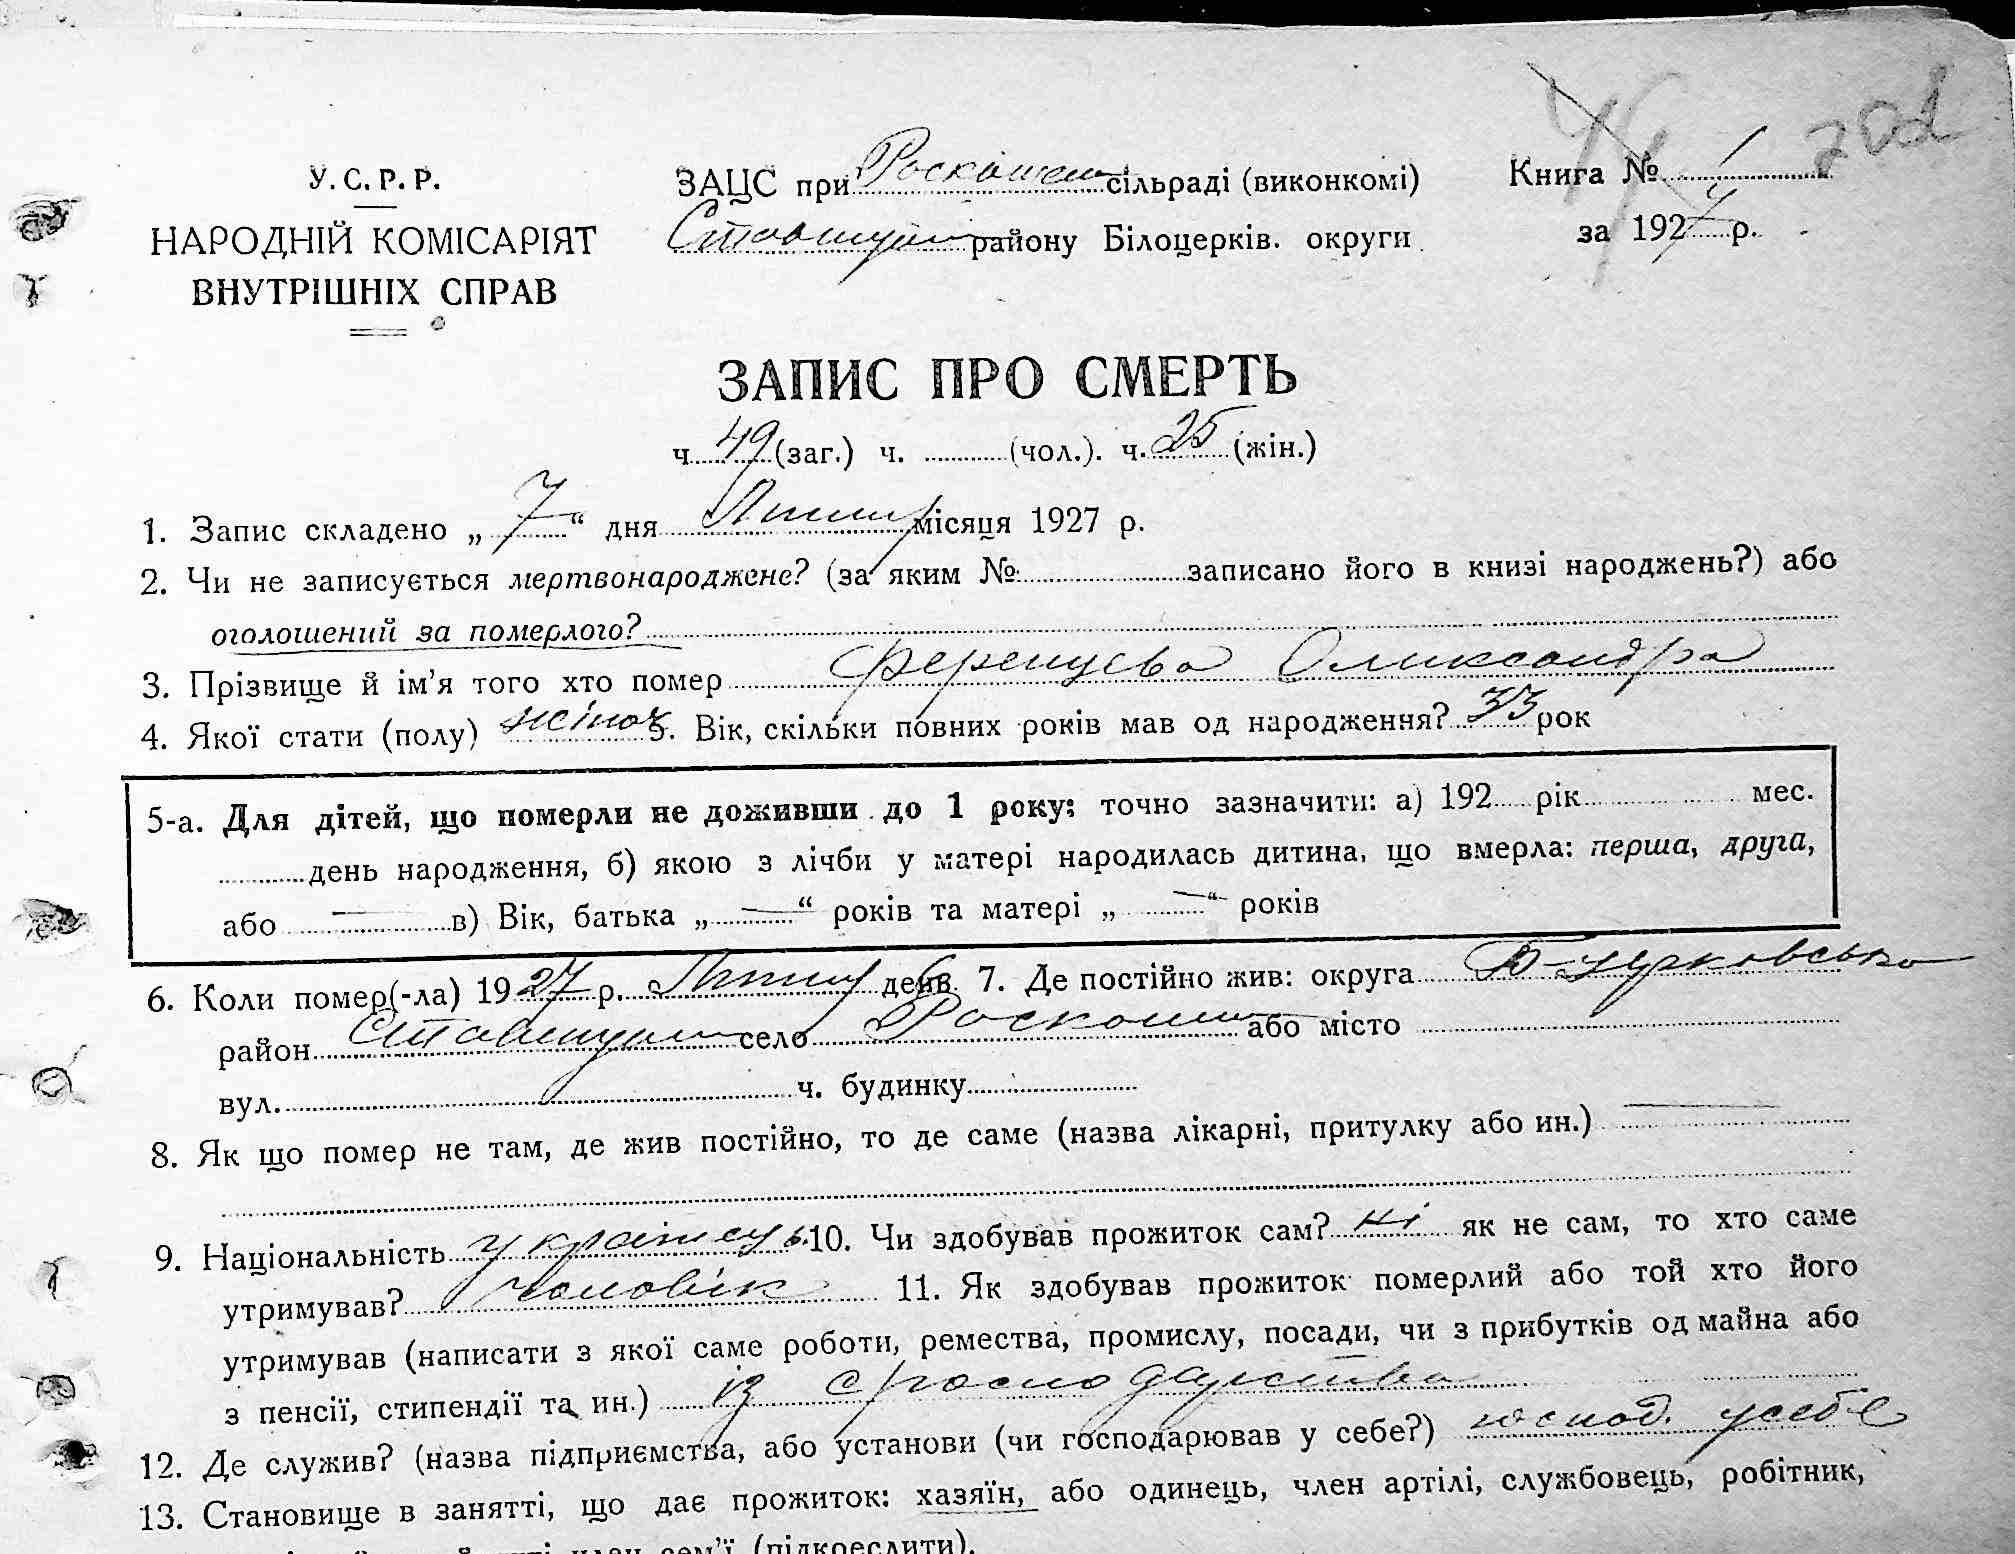 У. С. Р. Р.
НАРОДНІЙ КОМІСАРІЯТ
ВНУТРІШНІХ СПРАВ
ЗАЦС при Роскошем сільраді (виконкомі)
Ставищуем району Білоцерків. округи
Книга № 1
за 1927 р.
202
ЗАПИС ПРО СМЕРТЬ
ч. 49 (заг.) ч. (чол.). ч. 25 (жін.)
1. Запис складено „ 7 “ дня місяця 1927 р.
2. Чи не записується мертвонароджене? (за яким № записано його в книзі народжень?) або
оголошений за померлого?
3. Прізвище й ім’я того хто помер Ференцева Олександра
4. Якої стати (полу) жіноч. Вік, скільки повних років мав од народження? 33 рок
5-а. Для дітей, що померли не доживши до 1 року; точно зазначити: а) 192 рік мес.
день народження, б) якою з лічби у матері народилась дитина, що вмерла: перша, друга,
або — в) Вік, батька „ — “ років та матері „ — “ років
6. Коли помер(-ла) 1927 р. 6 день 7. Де постійно жив: округа Б-Церковська
район село Роскош або місто
вул. ч. будинку
8. Як що помер не там, де жив постійно, то де саме (назва лікарні, притулку або ин.) —
9. Національність українець 10. Чи здобував прожиток сам? ні як не сам, то хто саме
утримував? чоловік 11. Як здобував прожиток померлий або той хто його
утримував (написати з якої саме роботи, ремества, промислу, посади, чи з прибутків од майна або
з пенсії, стипендії та ин.) із с господарства
12. Де служив? (назва підприємства, або установи (чи господарював у себе?) господ. у себе
13. Становище в занятті, що дає прожиток: хазяїн, або одинець, член артілі, службовець, робітник,
член сем’ї (підкреслити).